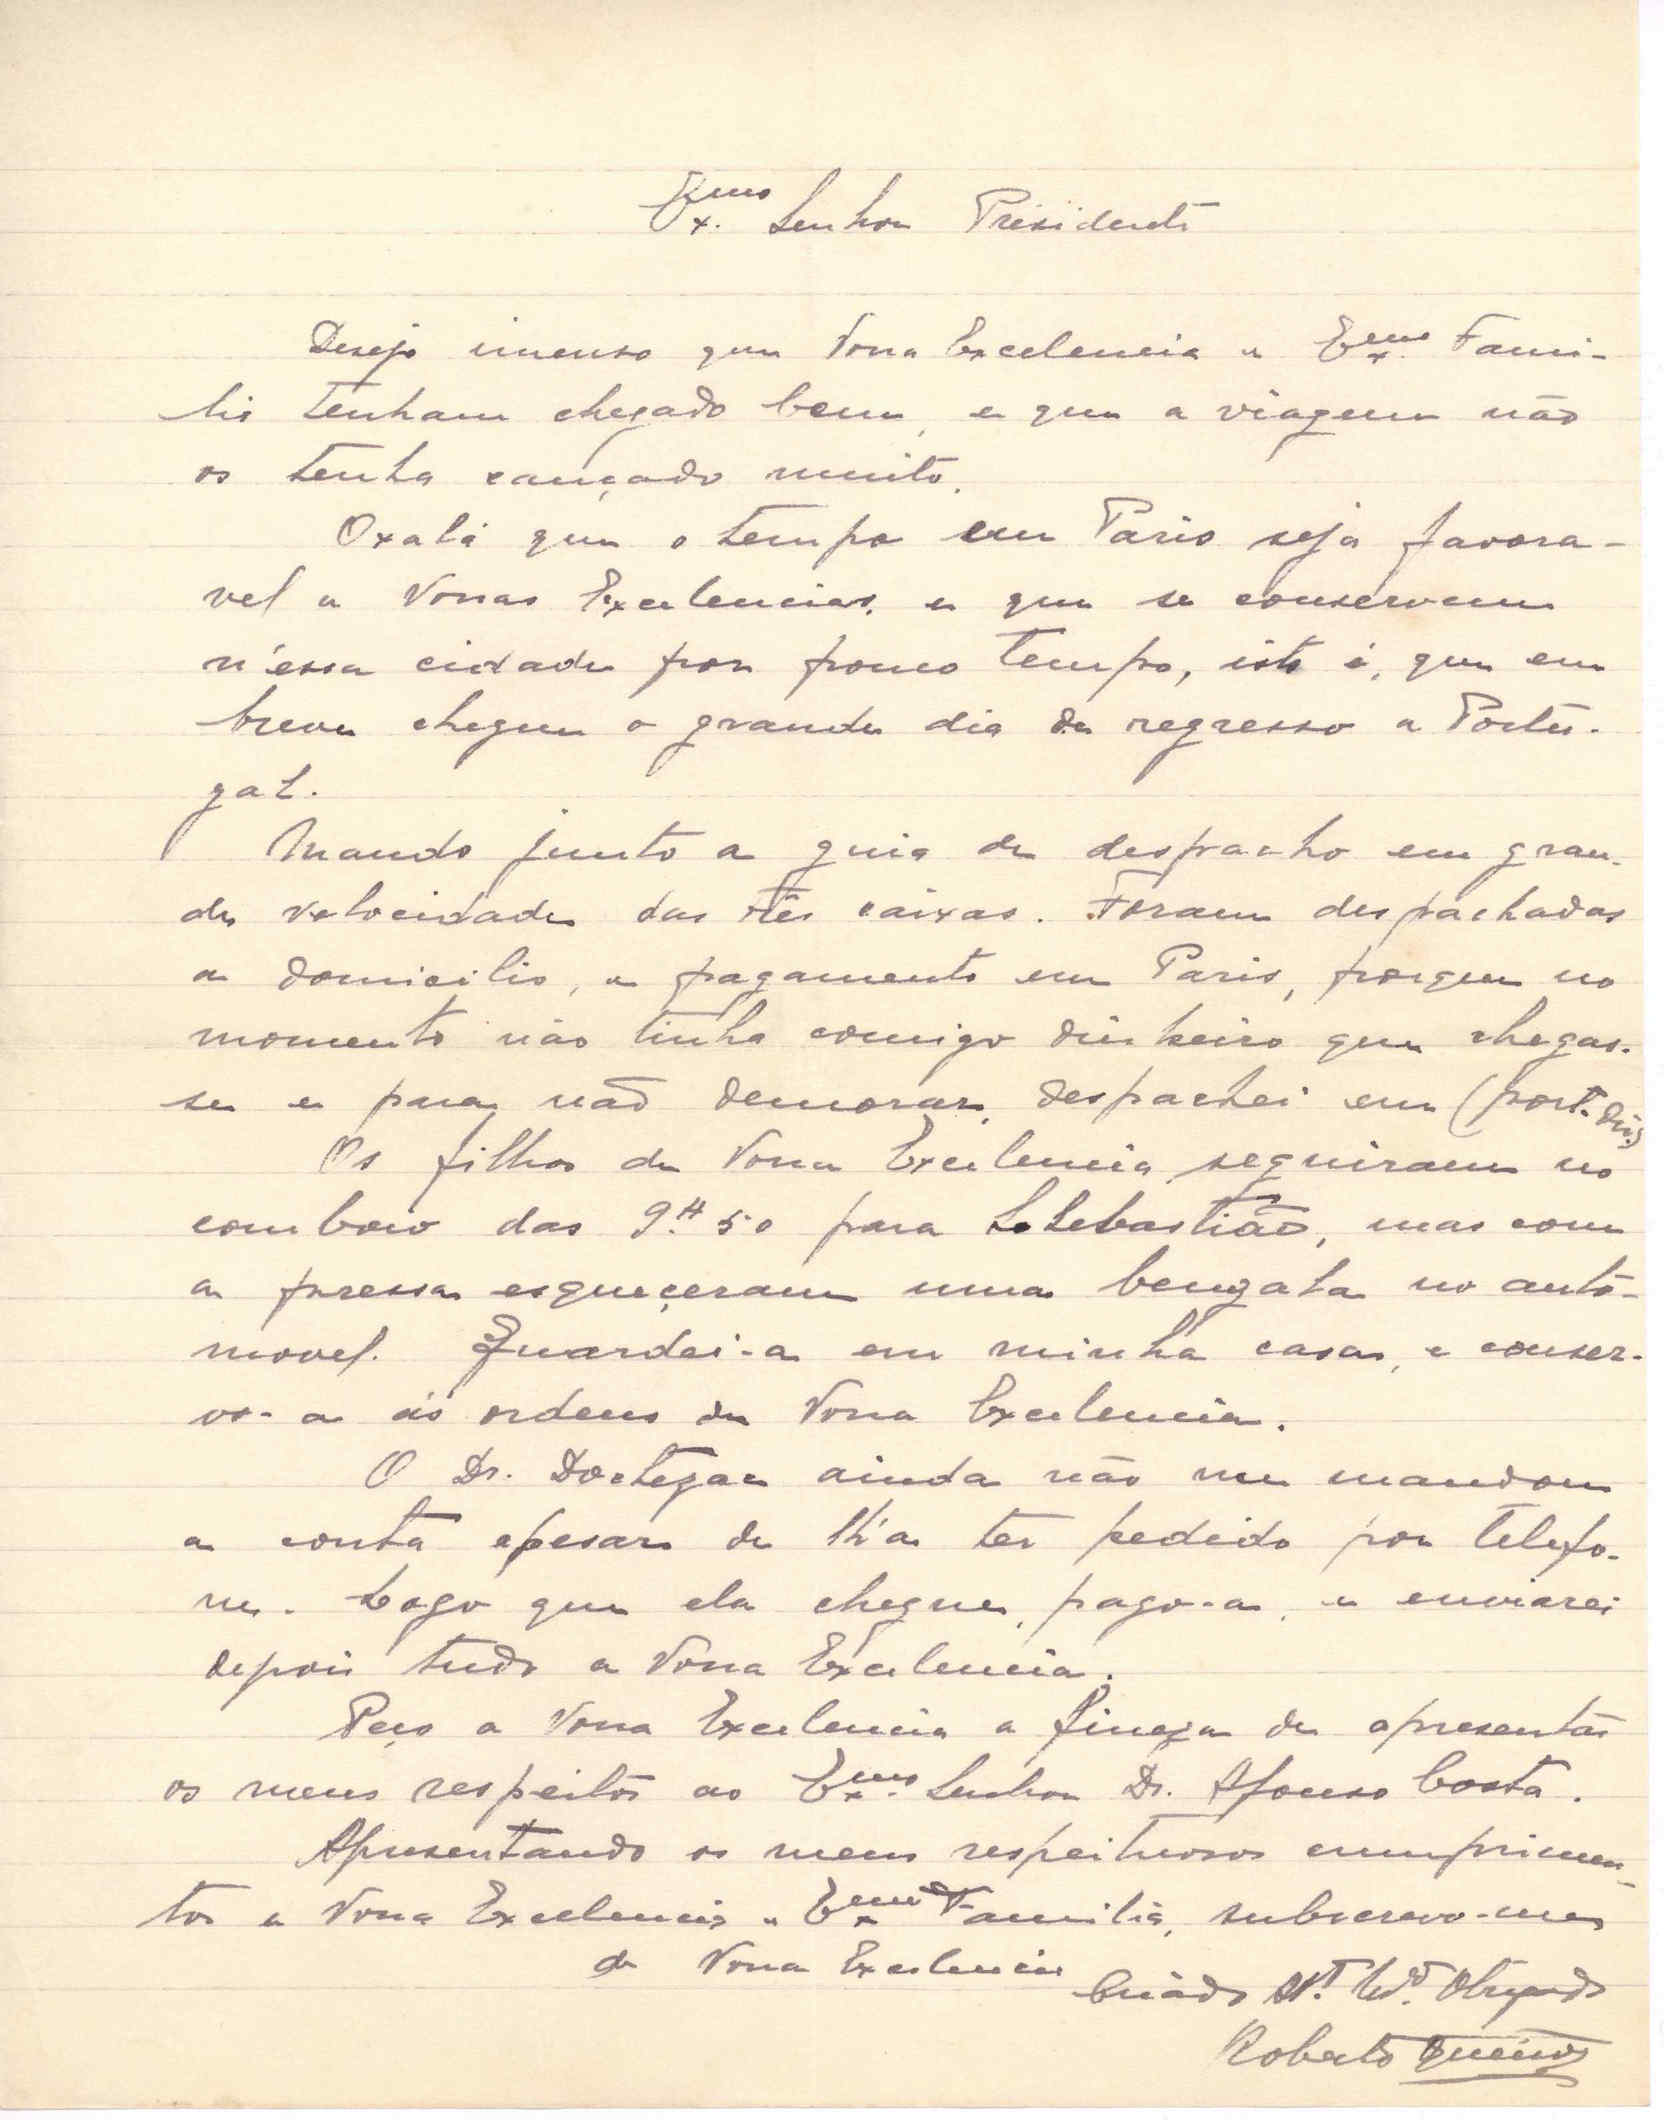 Exmo. Senhor Presidente
Desejo imenso que Vossa Excelencia e Exma. Fami-
lia tenham chegado bem, e que a viagem não
os tenha cançado muito.
Oxalá que o tempo em Paris seja favora-
vel a Vossas Excelencias, e que se conservem
n'essa cidade por pouco tempo, isto é, que em
breve chegue o grande dia de regresso a Portu-
gal.
Mando junto a guia de despacho em gran-
de velocidade das três caixas. Foram despachadas
a domicilio, e pagamento em Paris, porque no
momento não tinha comigo dinheiro que chegas-
se e para não demorar, despachei em (port. dû.)
Os filhos de Vossa Excelencia seguiram no
comboio das 9H. 50 para S. Sebastião, mas com
a pressa esqueçeram uma bengala no auto-
movel. Guardei-a em minha casa, e conser-
vo-a ás ordens de Vossa Excelencia.
O Dr. ainda não me mandou
a conta apesar de lh'a ter pedido por telefo-
ne. Logo que ela chegue, pago-a, e enviarei
depois tudo a Vossa Excelencia.
Peço a Vossa Excelencia a fineza de apresentar
os meus respeitos ao Exmo. Senhor Dr. Afonso Costa.
Apresentando os meus respeituosos cumprimen-
tos a Vossa Excelencia e Exma Familia, subscrevo-me
de Vossa Excelencia
Criado At.to M.to Obrigado
Roberto